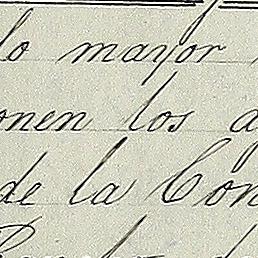 lo mayor
onen los a
de la Con